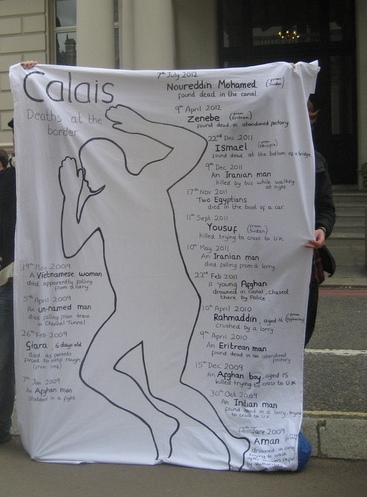 Calais
Deaths at the
border
7th July 2012
Noureddin Mohamed (from Sudan)
found dead in the canal
9th April 2012
Zenebe
found dead in abandoned factory
22nd Dec 2011
Ismael
found dead at the bottom of a bridge
9th Dec 2011
An Iranian man
killed by bus while walking
at night
17th Nov 2011
Two Egyptians
died in the boot of a car
11th Sept 2011
Yousuf (from Sudan)
killed trying to cross to U.K
10th May 2011
An Iranian man
died falling from a lorry
22nd Feb 2011
A young Afghan
drowned in canal, chased
there by Police
10th April 2010
Rahmaddin, aged 16
crushed by a lorry
9th April 2010
An Eritrean man
found dead in an abandoned
factory
15th Dec 2009
An Afghan boy, aged 15
killed trying to cross to U.K
30th Oct 2009
An Indian man
found dead in a lorry, trying
to cross to U.K
June 2009
Aman
19th Nov 2009
A Vietnamese woman
died apparently falling
from a lorry
5th April 2009
An un-named man
died falling from train
in Channel Tunnel
26th Feb 2009
6 days old
died as parents
7th Jan 2009
An Afghan man
stabbed in a fight